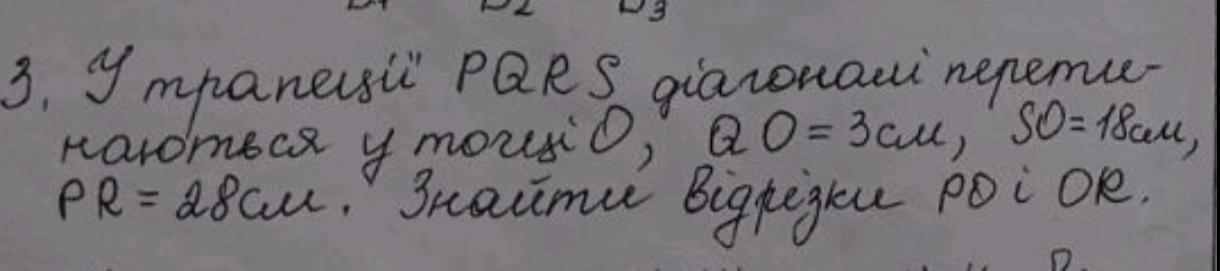 3. У трапеції PQRS діагоналі перети-
наються у точці O, QO = 3см, SO = 18см,
PR = 28см. Знайти відрізки PO і OR.